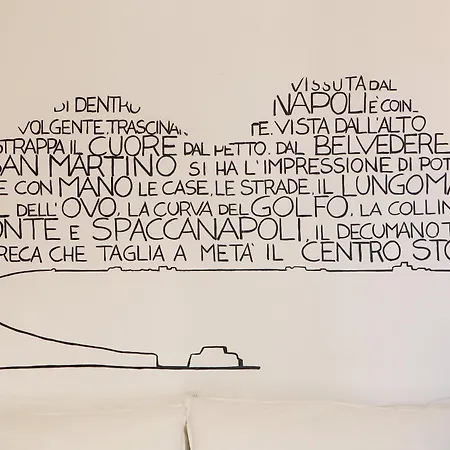 VISSUTA DAL
DI DENTRO NAPOLI È COIN
VOLGENTE, TRASCINAN TE, VISTA DALL'ALTO
STRAPPA IL CUORE DAL PETTO. DAL BELVEDERE
SAN MARTINO SI HA L'IMPRESSIONE DI POT
E CON MANO LE CASE, LE STRADE, IL LUNGOMA
L DELL'OVO, LA CURVA DEL GOLFO, LA COLLIN
ONTE E SPACCANAPOLI, IL DECUMANO
RECA CHE TAGLIA A METÀ IL CENTRO STO